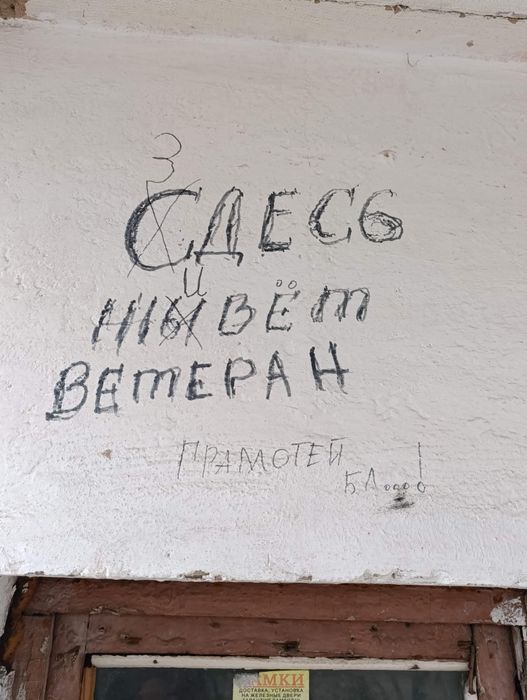 З
СДЕСЬ
И
ЖЫВЁТ
ВЕТЕРАН
ГРАМОТЕЙ
БЛ....!
ЗАМКИ
ДОСТАВКА, УСТАНОВКА
НА ЖЕЛЕЗНЫЕ ДВЕРИ